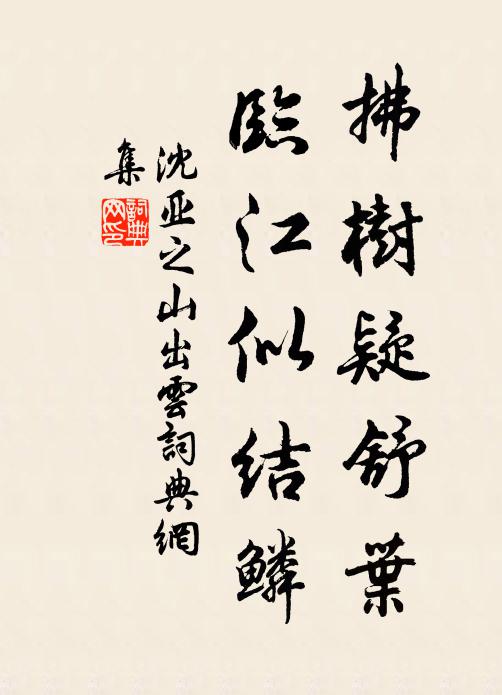 拂樹疑舒葉
臨江似結鱗
沈亚之山出雲詞典網
集
詞典
网印